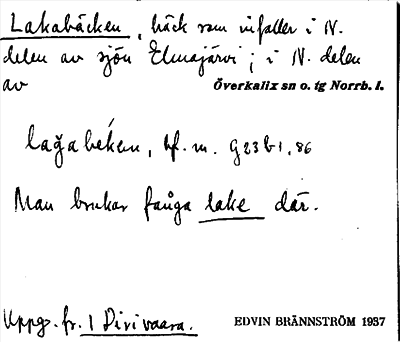 Lakabäcken, bäck som infaller i N.
delen av sjön Elmajärvi; i N. delen
av Överkalix sn o. tg Norrb. l.
lağabéken, bf. m. G23b1, 86
Man brukar fånga lake där.
Uppg. fr. 1 Dirivaara. EDVIN BRÄNNSTRÖM 1937